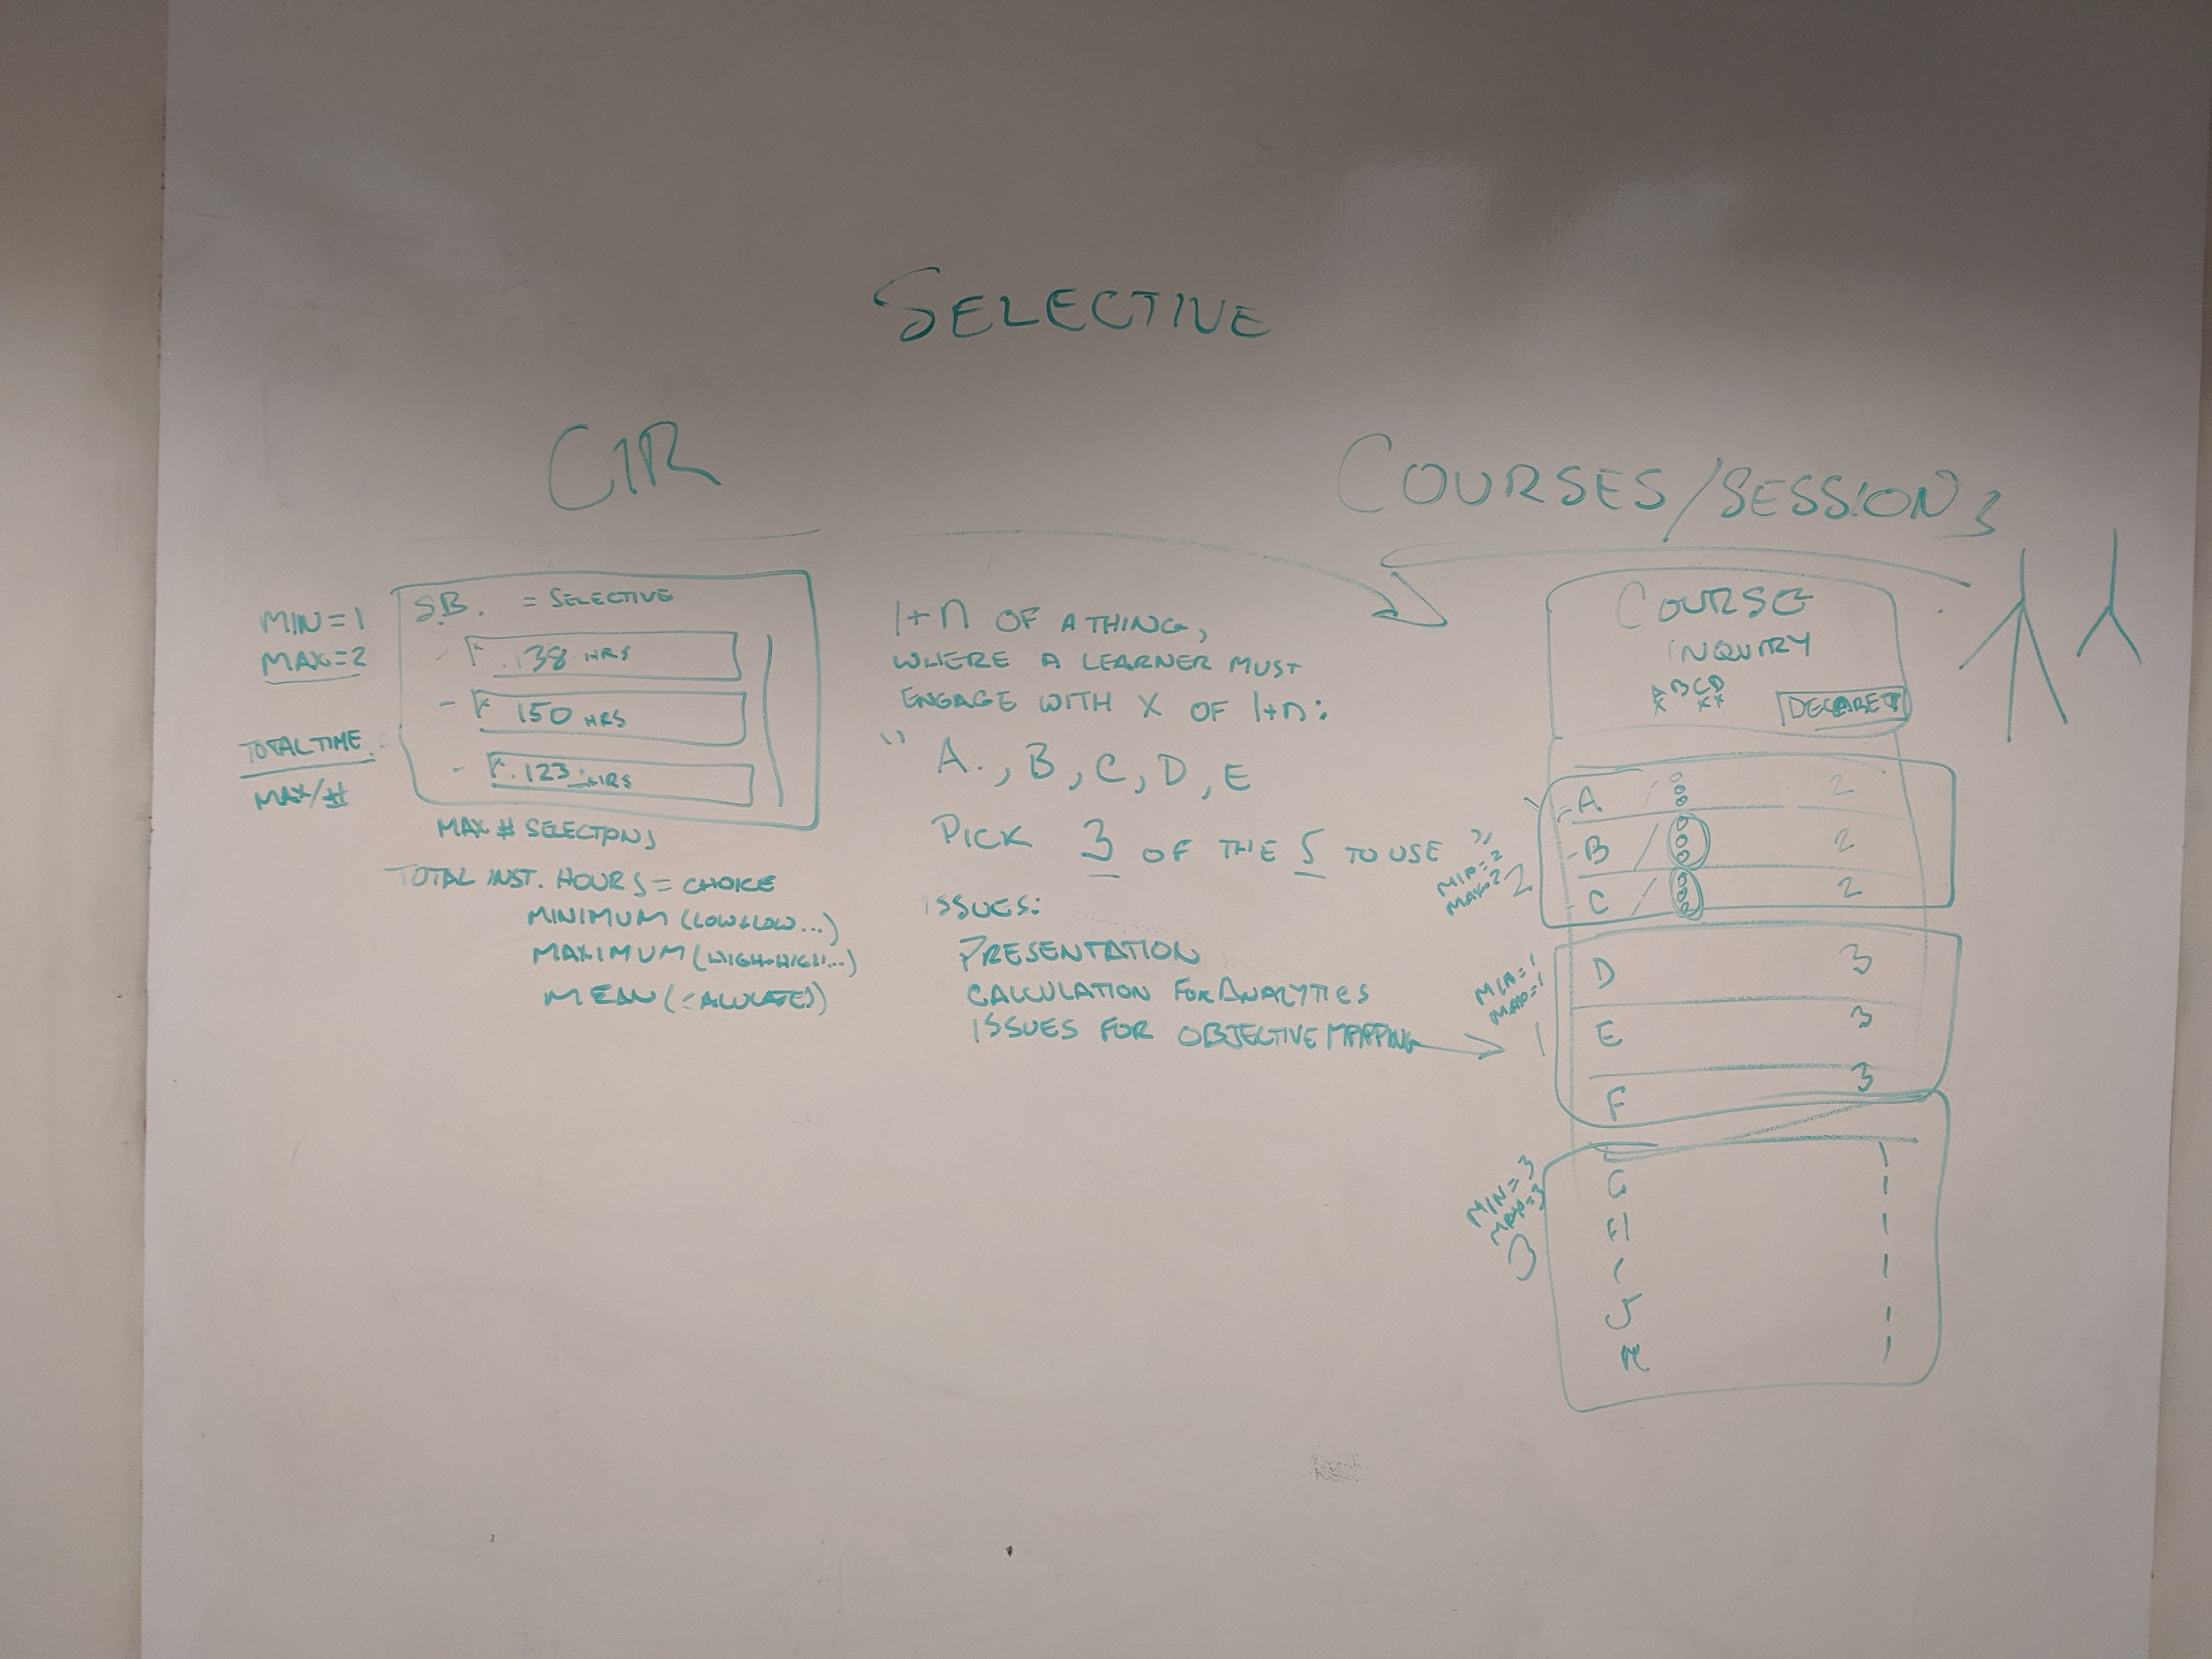 SELECTIVE
CIR
MIN=1
MAX=2
TOTAL TIME
MAX/#
S.B. = SELECTIVE
138 HRS
150 HRS
123 HRS
MAX # SELECTIONS
TOTAL INST. HOURS = CHOICE
MINIMUM (LOW+LOW...)
MAXIMUM (HIGH+HIGH...)
MEAN (CALULATED)
1+n OF A THING,
WHERE A LEARNER MUST
ENGAGE WITH X OF 1+n:
" A., B, C, D, E
PICK 3 OF THE 5 TO USE "
ISSUES:
PRESENTATION
CALCULATION FOR ANALYTICS
ISSUES FOR OBJECTIVE MAPPING
COURSES/SESSIONS
COURSE
INQUIRY
A B C D
X X X
MIN=2
MAX=2
2
A 2
B 2
C 2
MIN=1
MAX=1
1
D 3
E 3
F 3
MIN=3
MAX=3
3
G 1
H 1
I 1
J 1
K 1